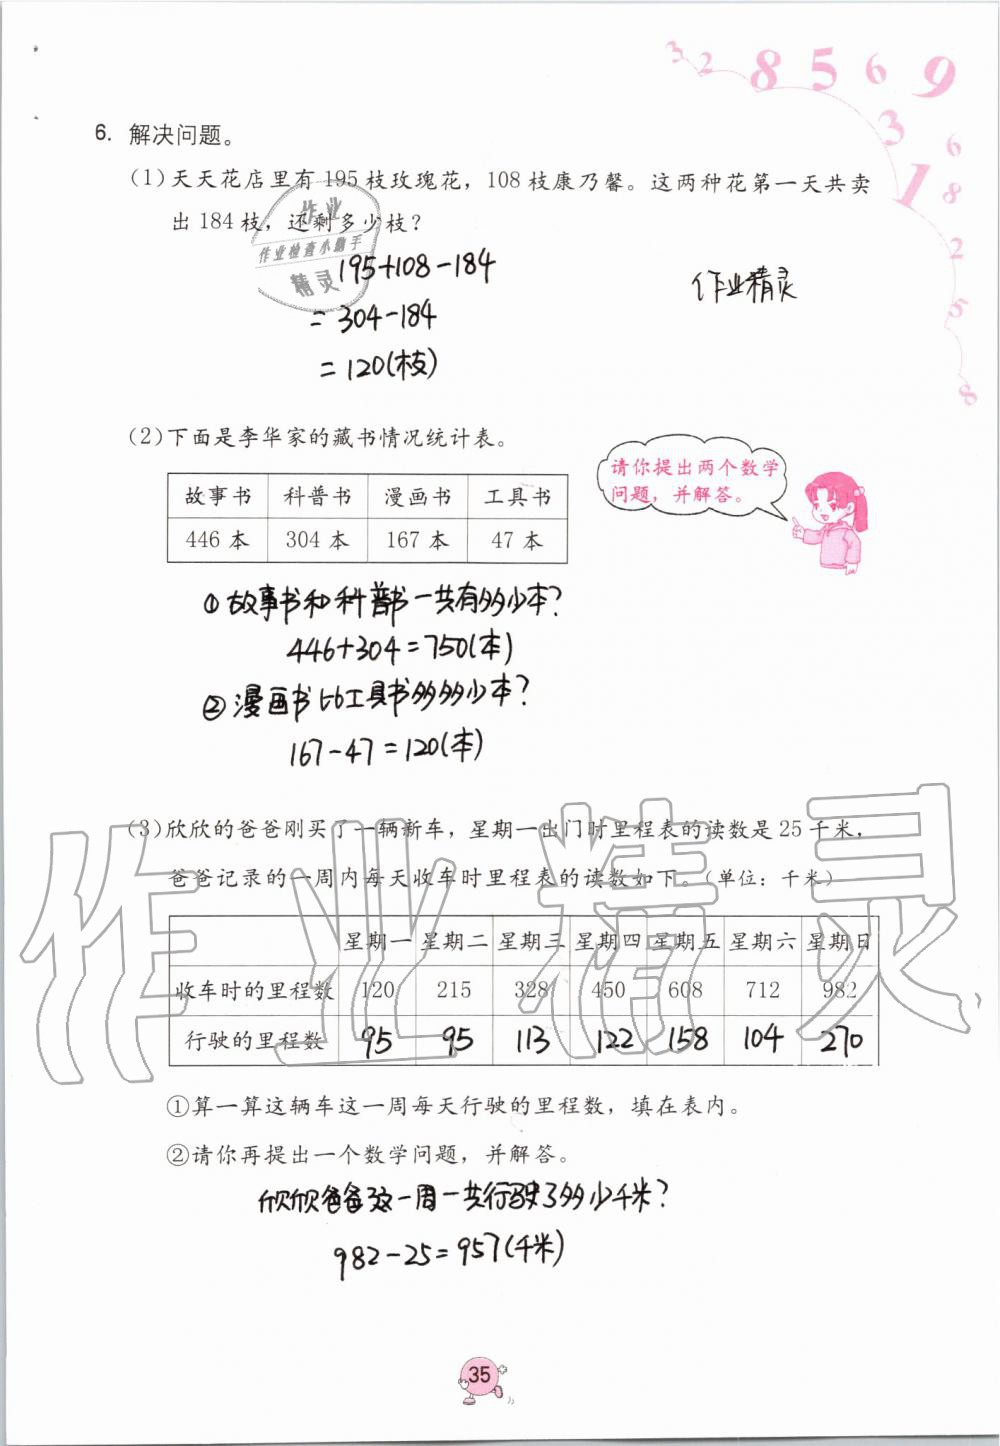 3 2 8 5 6 9
3
1
6
8
2
5
8
6. 解决问题。
(1)天天花店里有195枝玫瑰花，108枝康乃馨。这两种花第一天共卖
出184枝，还剩多少枝？
作业
作业检查小助手
精灵
195+108-184
=304-184
=120(枝)
作业精灵
(2)下面是李华家的藏书情况统计表。
故事书 科普书 漫画书 工具书
446本 304本 167本 47本
请你提出两个数学
问题，并解答。
①故事书和科普书一共有多少本?
446+304=750(本)
②漫画书比工具书多多少本?
167-47=120(本)
(3)欣欣的爸爸刚买了一辆新车，星期一出门时里程表的读数是25千米，
爸爸记录的一周内每天收车时里程表的读数如下。(单位：千米)
星期一 星期二 星期三 星期四 星期五 星期六 星期日
收车时的里程数 120 215 328 450 608 712 982
行驶的里程数 95 95 113 122 158 104 270
作业精灵
①算一算这辆车这一周每天行驶的里程数，填在表内。
②请你再提出一个数学问题，并解答。
欣欣爸爸这一周一共行驶了多少千米?
982-25=957(千米)
35